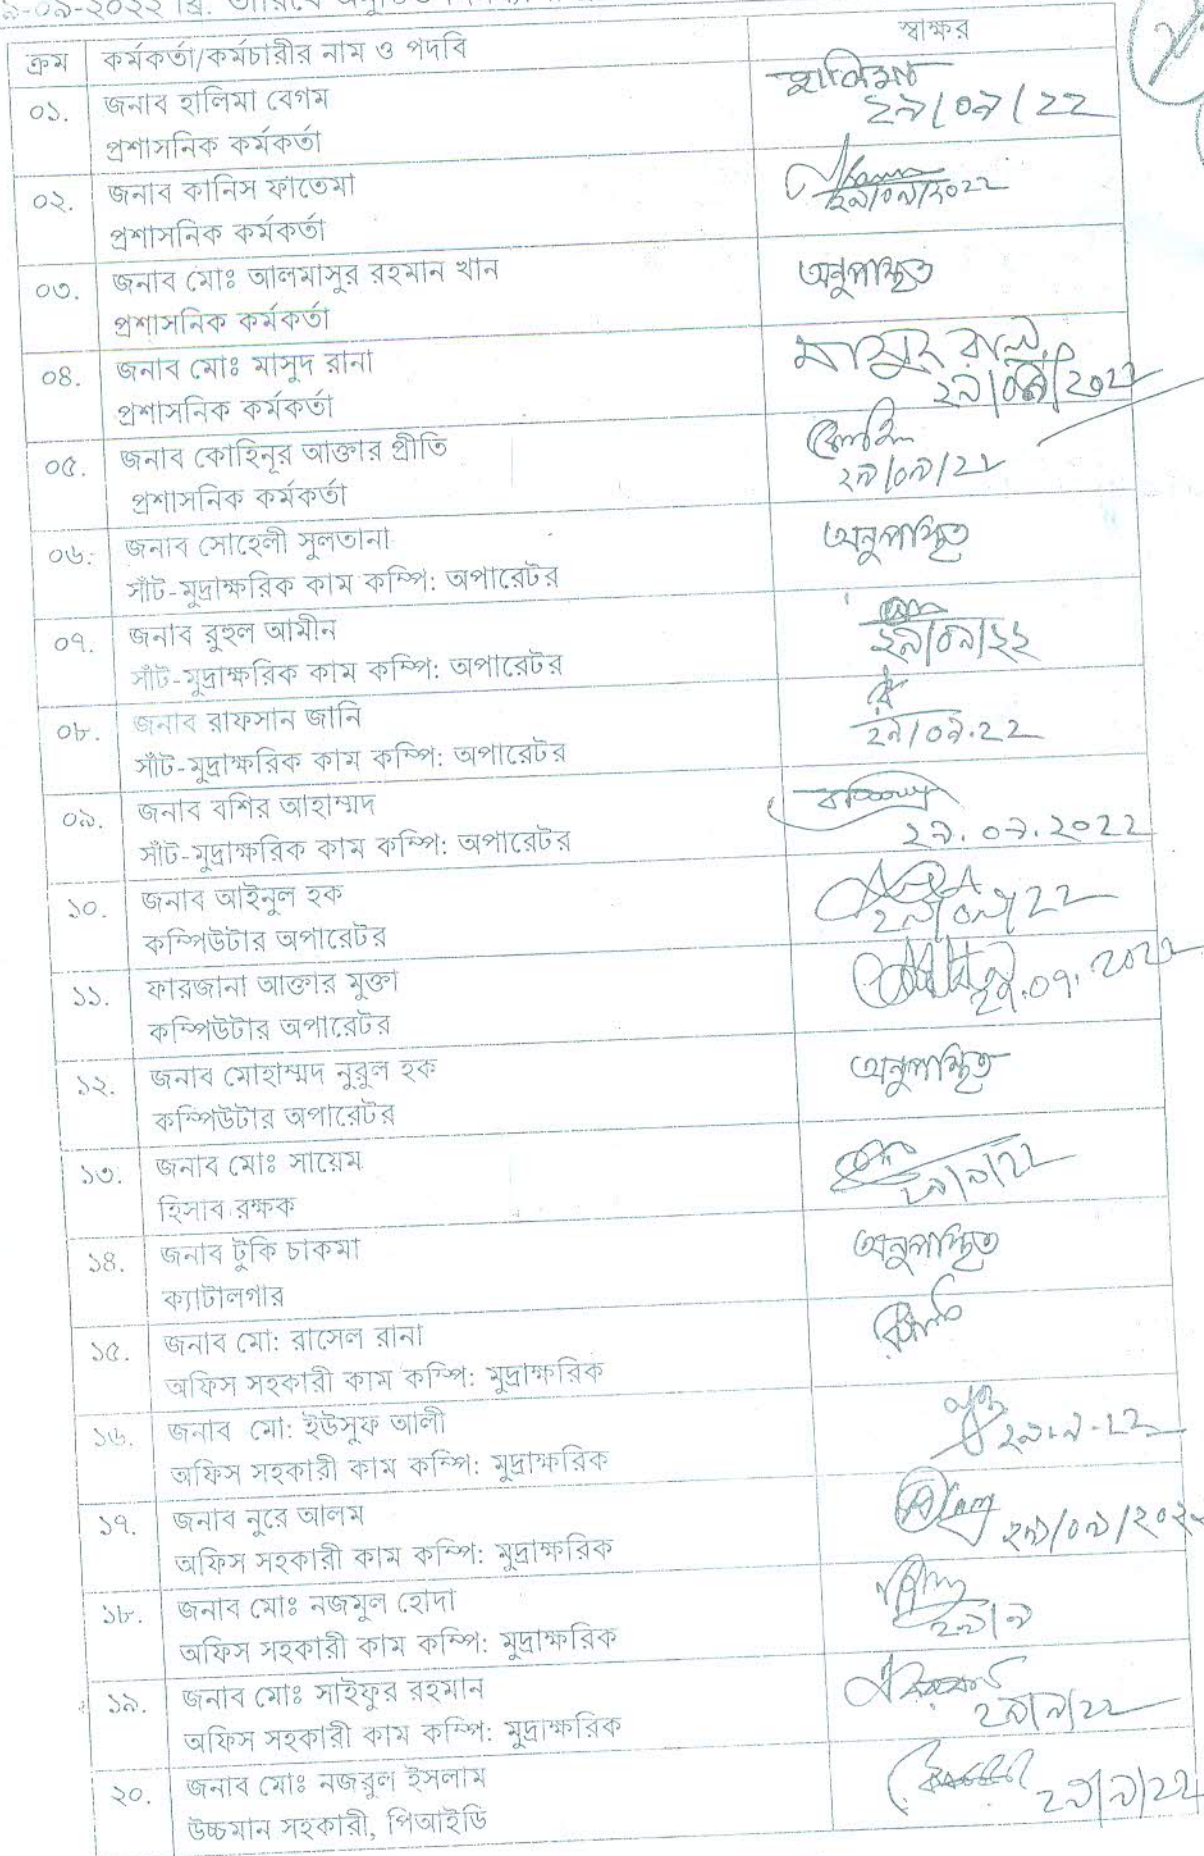 ক্রম কর্মকর্তা/কর্মচারীর নাম ও পদবি স্বাক্ষর
০১. জনাব হালিমা বেগম হালিমা
প্রশাসনিক কর্মকর্তা ২৯/০৯/২২
০২. জনাব কানিস ফাতেমা
প্রশাসনিক কর্মকর্তা ২৯/০৯/২০২২
০৩. জনাব মোঃ আলমাসুর রহমান খান অনুপস্থিত
প্রশাসনিক কর্মকর্তা
০৪. জনাব মোঃ মাসুদ রানা মাসুদ রানা
প্রশাসনিক কর্মকর্তা ২৯/০৯/২০২২
০৫. জনাব কোহিনূর আক্তার প্রীতি
প্রশাসনিক কর্মকর্তা ২৯/০৯/২২
০৬. জনাব সোহেলী সুলতানা অনুপস্থিত
সাঁট-মুদ্রাক্ষরিক কাম কম্পি: অপারেটর
০৭. জনাব রুহুল আমীন
সাঁট-মুদ্রাক্ষরিক কাম কম্পি: অপারেটর ২৯/০৯/২২
০৮. জনাব রাফসান জানি
সাঁট-মুদ্রাক্ষরিক কাম কম্পি: অপারেটর ২৯/০৯.২২
০৯. জনাব বশির আহাম্মদ
সাঁট-মুদ্রাক্ষরিক কাম কম্পি: অপারেটর ২৯.০৯.২০২২
১০. জনাব আইনুল হক
কম্পিউটার অপারেটর ২৯/০৯/২২
১১. ফারজানা আক্তার মুক্তা
কম্পিউটার অপারেটর ২৯.০৯.২০২২
১২. জনাব মোহাম্মদ নুরুল হক অনুপস্থিত
কম্পিউটার অপারেটর
১৩. জনাব মোঃ সায়েম
হিসাব রক্ষক ২৯/৯/২২
১৪. জনাব টুকি চাকমা অনুপস্থিত
ক্যাটালগার
১৫. জনাব মো: রাসেল রানা
অফিস সহকারী কাম কম্পি: মুদ্রাক্ষরিক
১৬. জনাব মো: ইউসুফ আলী
অফিস সহকারী কাম কম্পি: মুদ্রাক্ষরিক ২৯-৯-২২
১৭. জনাব নুরে আলম
অফিস সহকারী কাম কম্পি: মুদ্রাক্ষরিক ২৯/০৯/২০২২
১৮. জনাব মোঃ নজমুল হোদা
অফিস সহকারী কাম কম্পি: মুদ্রাক্ষরিক ২৯/৯
১৯. জনাব মোঃ সাইফুর রহমান
অফিস সহকারী কাম কম্পি: মুদ্রাক্ষরিক ২৯/৯/২২
২০. জনাব মোঃ নজরুল ইসলাম
উচ্চমান সহকারী, পিআইডি ২৯/৯/২২